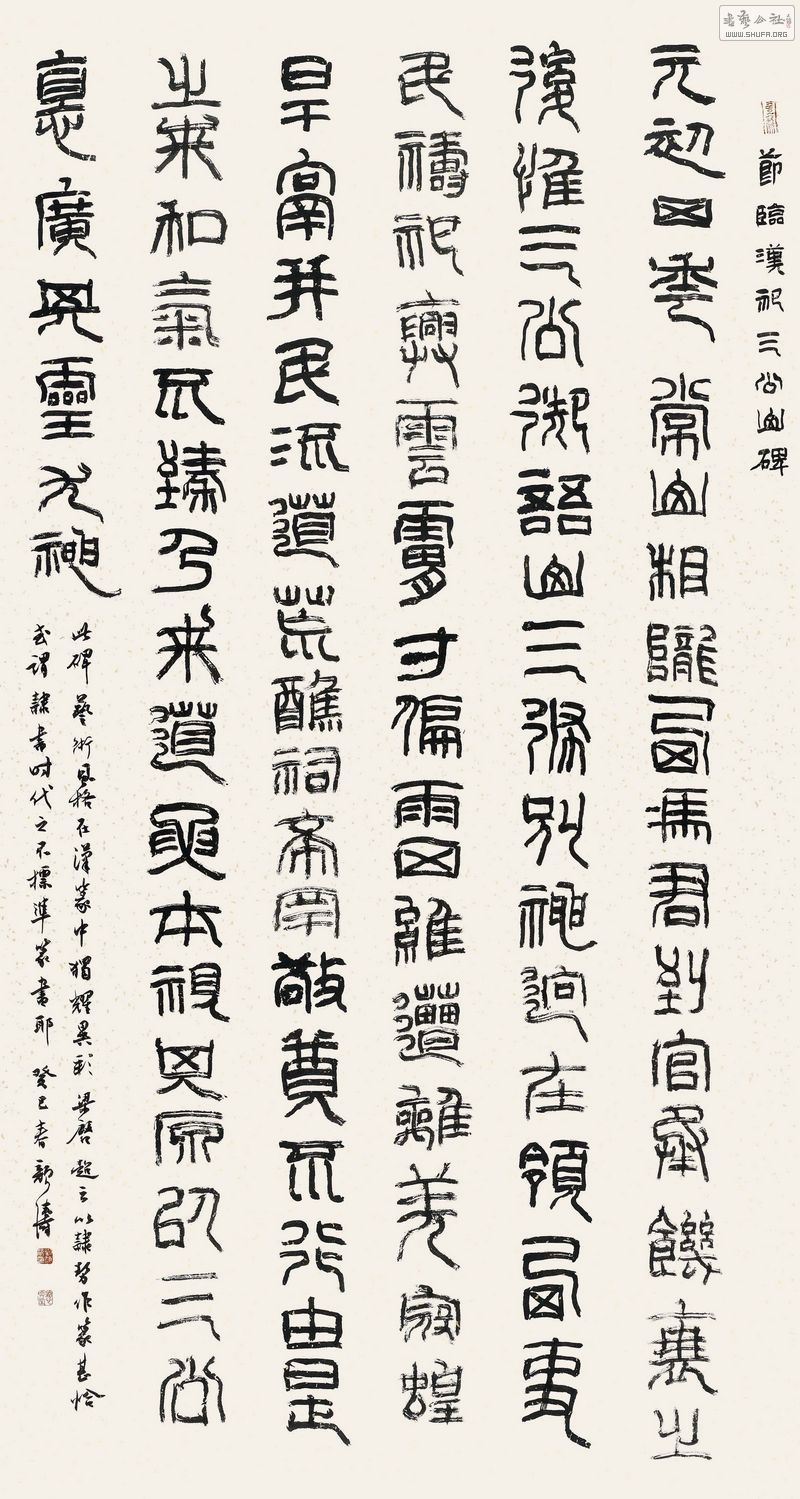 書藝公社
WWW.SHUFA.ORG
節臨漢祀三公山碑
元初四年常山相隴西馮君到官承饑衰之
後惟三公御語山三條別神迥在領西吏
民禱祀興雲膚寸偏雨四維遭離羌寇蝗
旱鬲并民流道荒醮祠希罕敬奠不行由是
之來和氣不臻乃來道要本祖其原以三公
悳廣其靈尤神
此碑藝術風格在漢篆中獨耀異彩梁啓超云以隸勢作篆甚恰
或謂隸書時代之不標準篆書耶癸巳春濤